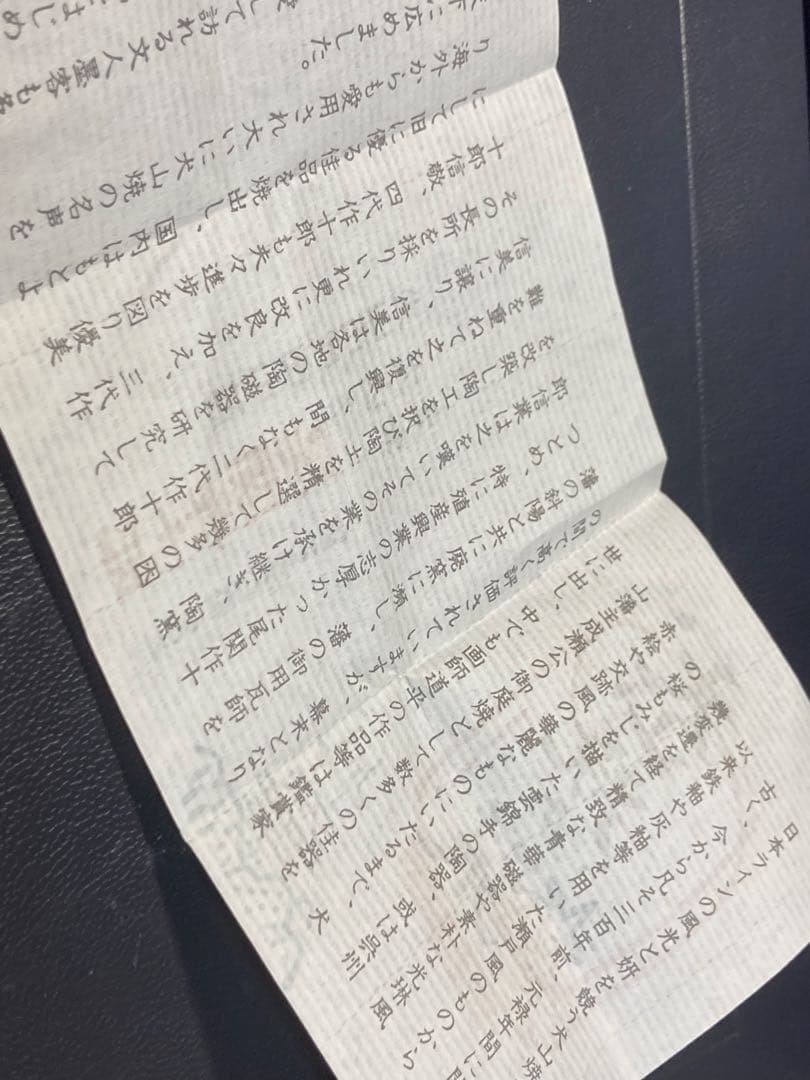 日本ラインの風光と妍を競う犬山焼
古く、今から凡そ三百年前、元禄年間に
以来鉄釉や灰釉等を用いた瀬戸風のものから
幾変遷を経て精致な青華磁器や素朴な光琳風
の桜もみじを描いた雲錦手の陶器、或は呉州
赤絵や交跡風の華麗なものにいたるまで、犬
山藩主成瀬公の御庭焼として数多くの佳器を
世に出し、中でも画師道平の作品等は鑑賞家
の間で高く評価されていますが、幕末となり
藩の斜陽と共に廃窯に瀕し、藩の御用瓦師を
つとめ、特に殖産興業の志厚かった尾関作十
郎信業は之を嘆いてその業を承け継ぎ、陶窯
を改築し陶工を択び陶土を精選して幾多の困
難を重ねて之を復興し、間もなく二代作十郎
信美に譲り、信美は各地の陶磁器を研究して
その長所を採りいれ更に改良を加え、三代作
十郎信敬、四代作十郎も夫々進歩を図り優美
にして旧に優る佳品を焼出し、国内はもとよ
り海外からも愛用され大いに犬山焼の名声を
天下に広めました。
して訪れる文人墨客も多
はじめ